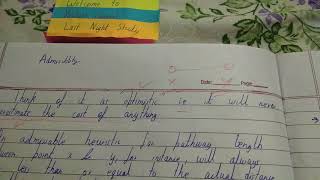 Welcome to
Last Night Study
Admissibility
Date: Page:
Think of it as optimistic ie it will never
overestimate the cost of anything.
An admissible heuristic for pathway length
between point x & y, for instance, will always
less than or equal to the actual distance